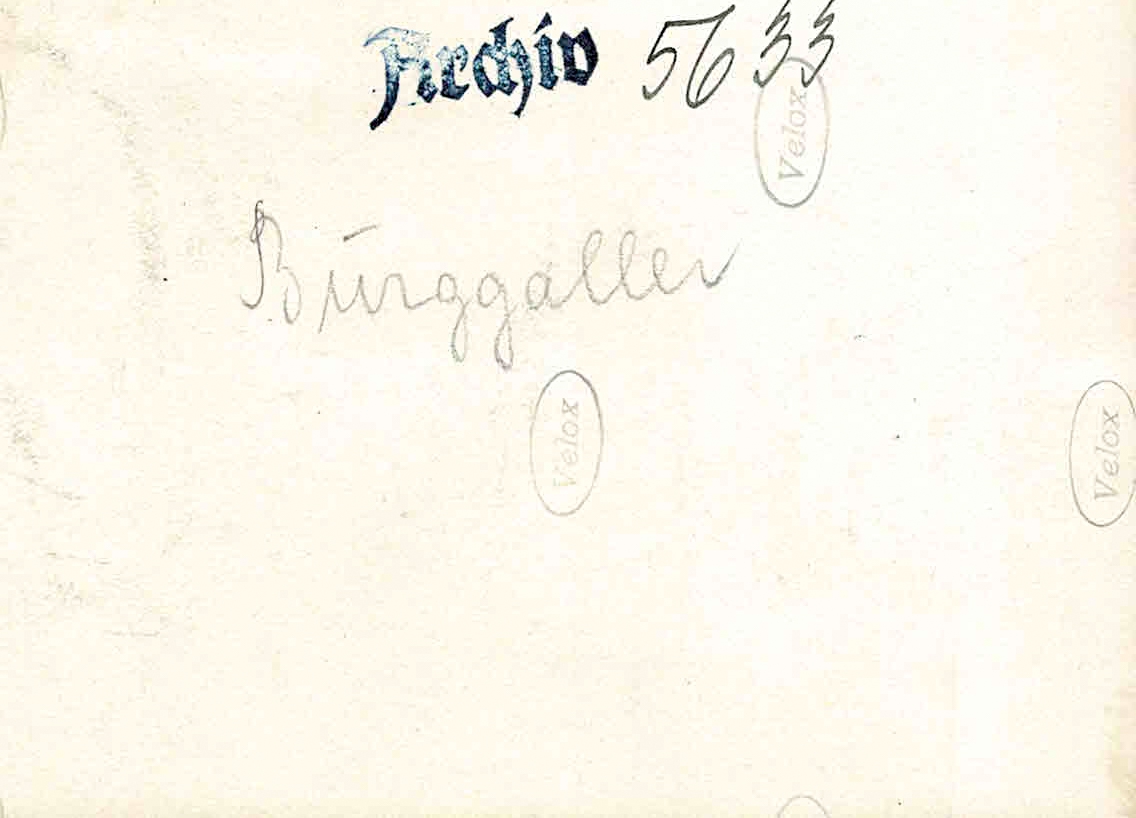 Archiv 5633
Velox
Burggaller
Velox
Velox